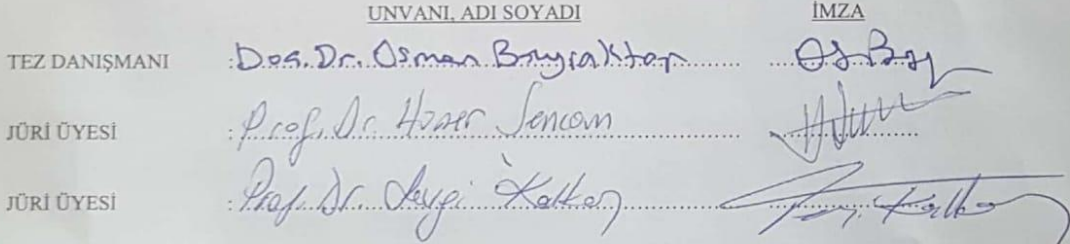 UNVANI, ADI SOYADI İMZA
TEZ DANIŞMANI : Doç. Dr. Osman Bayraktar
JÜRİ ÜYESİ : Prof. Dr. Hüner Şencan
JÜRİ ÜYESİ : Prof. Dr. Sevgi Kalkan